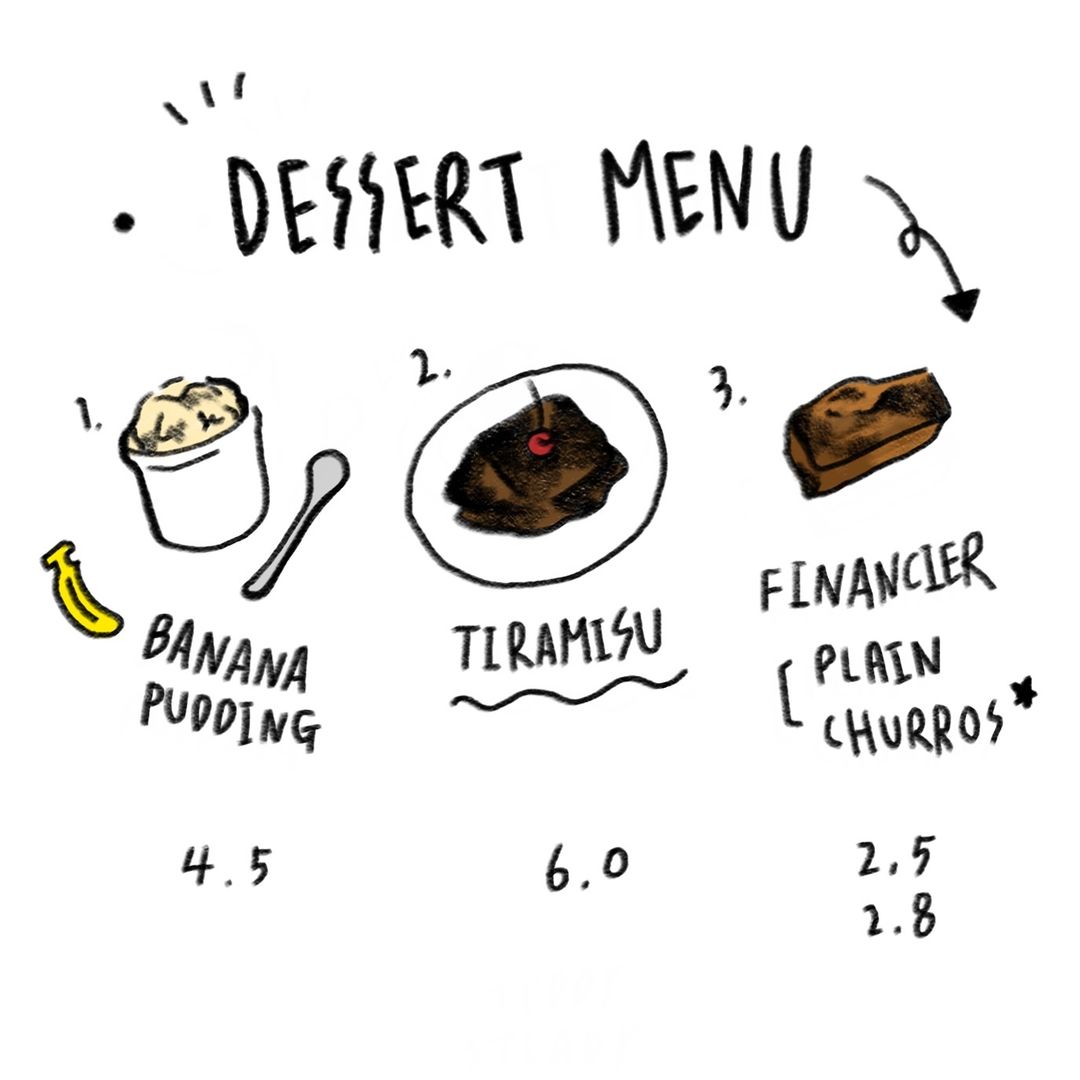 DESSERT MENU
1.
BANANA
PUDDING
4.5
2.
TIRAMISU
6.0
3.
FINANCIER
[ PLAIN
CHURROS★
2.5
2.8